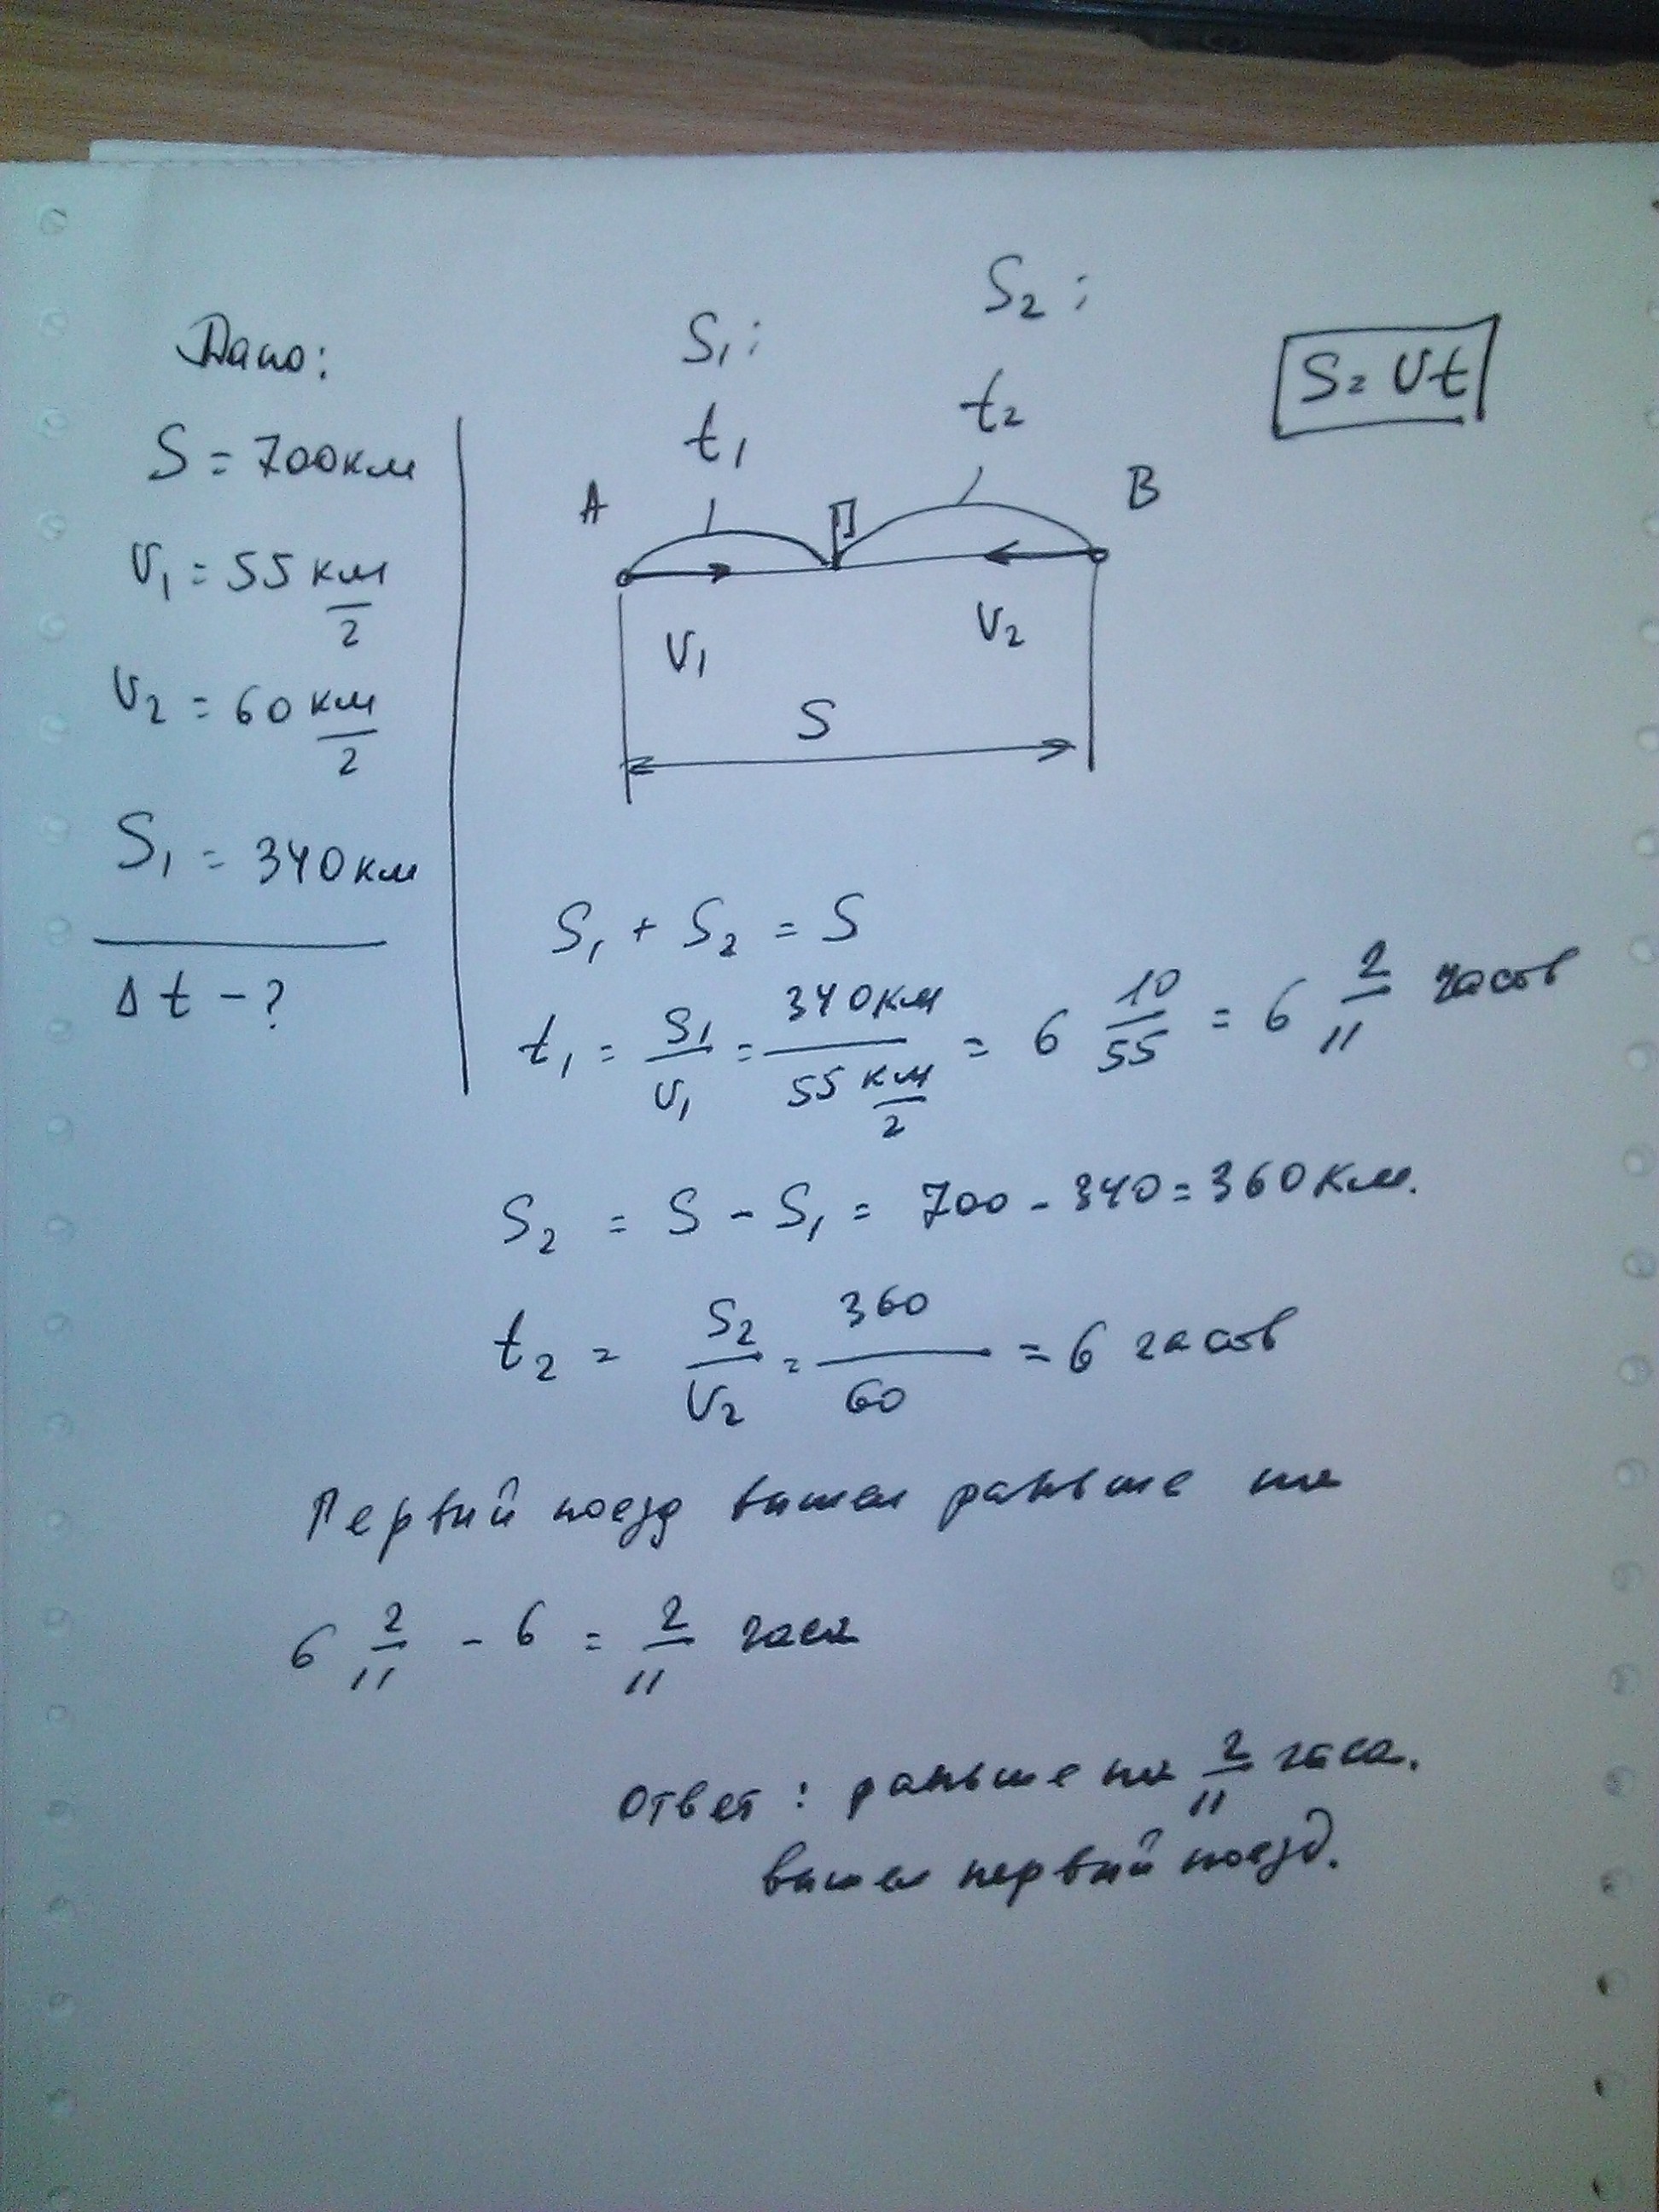 Дано:
S = 700км
V₁ = 55 км/ч
V₂ = 60 км/ч
S₁ = 340км
Δt - ?
S₁;
t₁
S₂;
t₂
S = Vt
A
B
V₁
V₂
S
S₁ + S₂ = S
t₁ = S₁/V₁ = 340км/55 км/ч = 6 10/55 = 6 2/11 часов
S₂ = S - S₁ = 700 - 340 = 360 км.
t₂ = S₂/V₂ = 360/60 = 6 часов
Первый поезд вышел раньше на
6 2/11 - 6 = 2/11 часа
Ответ: раньше на 2/11 часа.
вышел первый поезд.